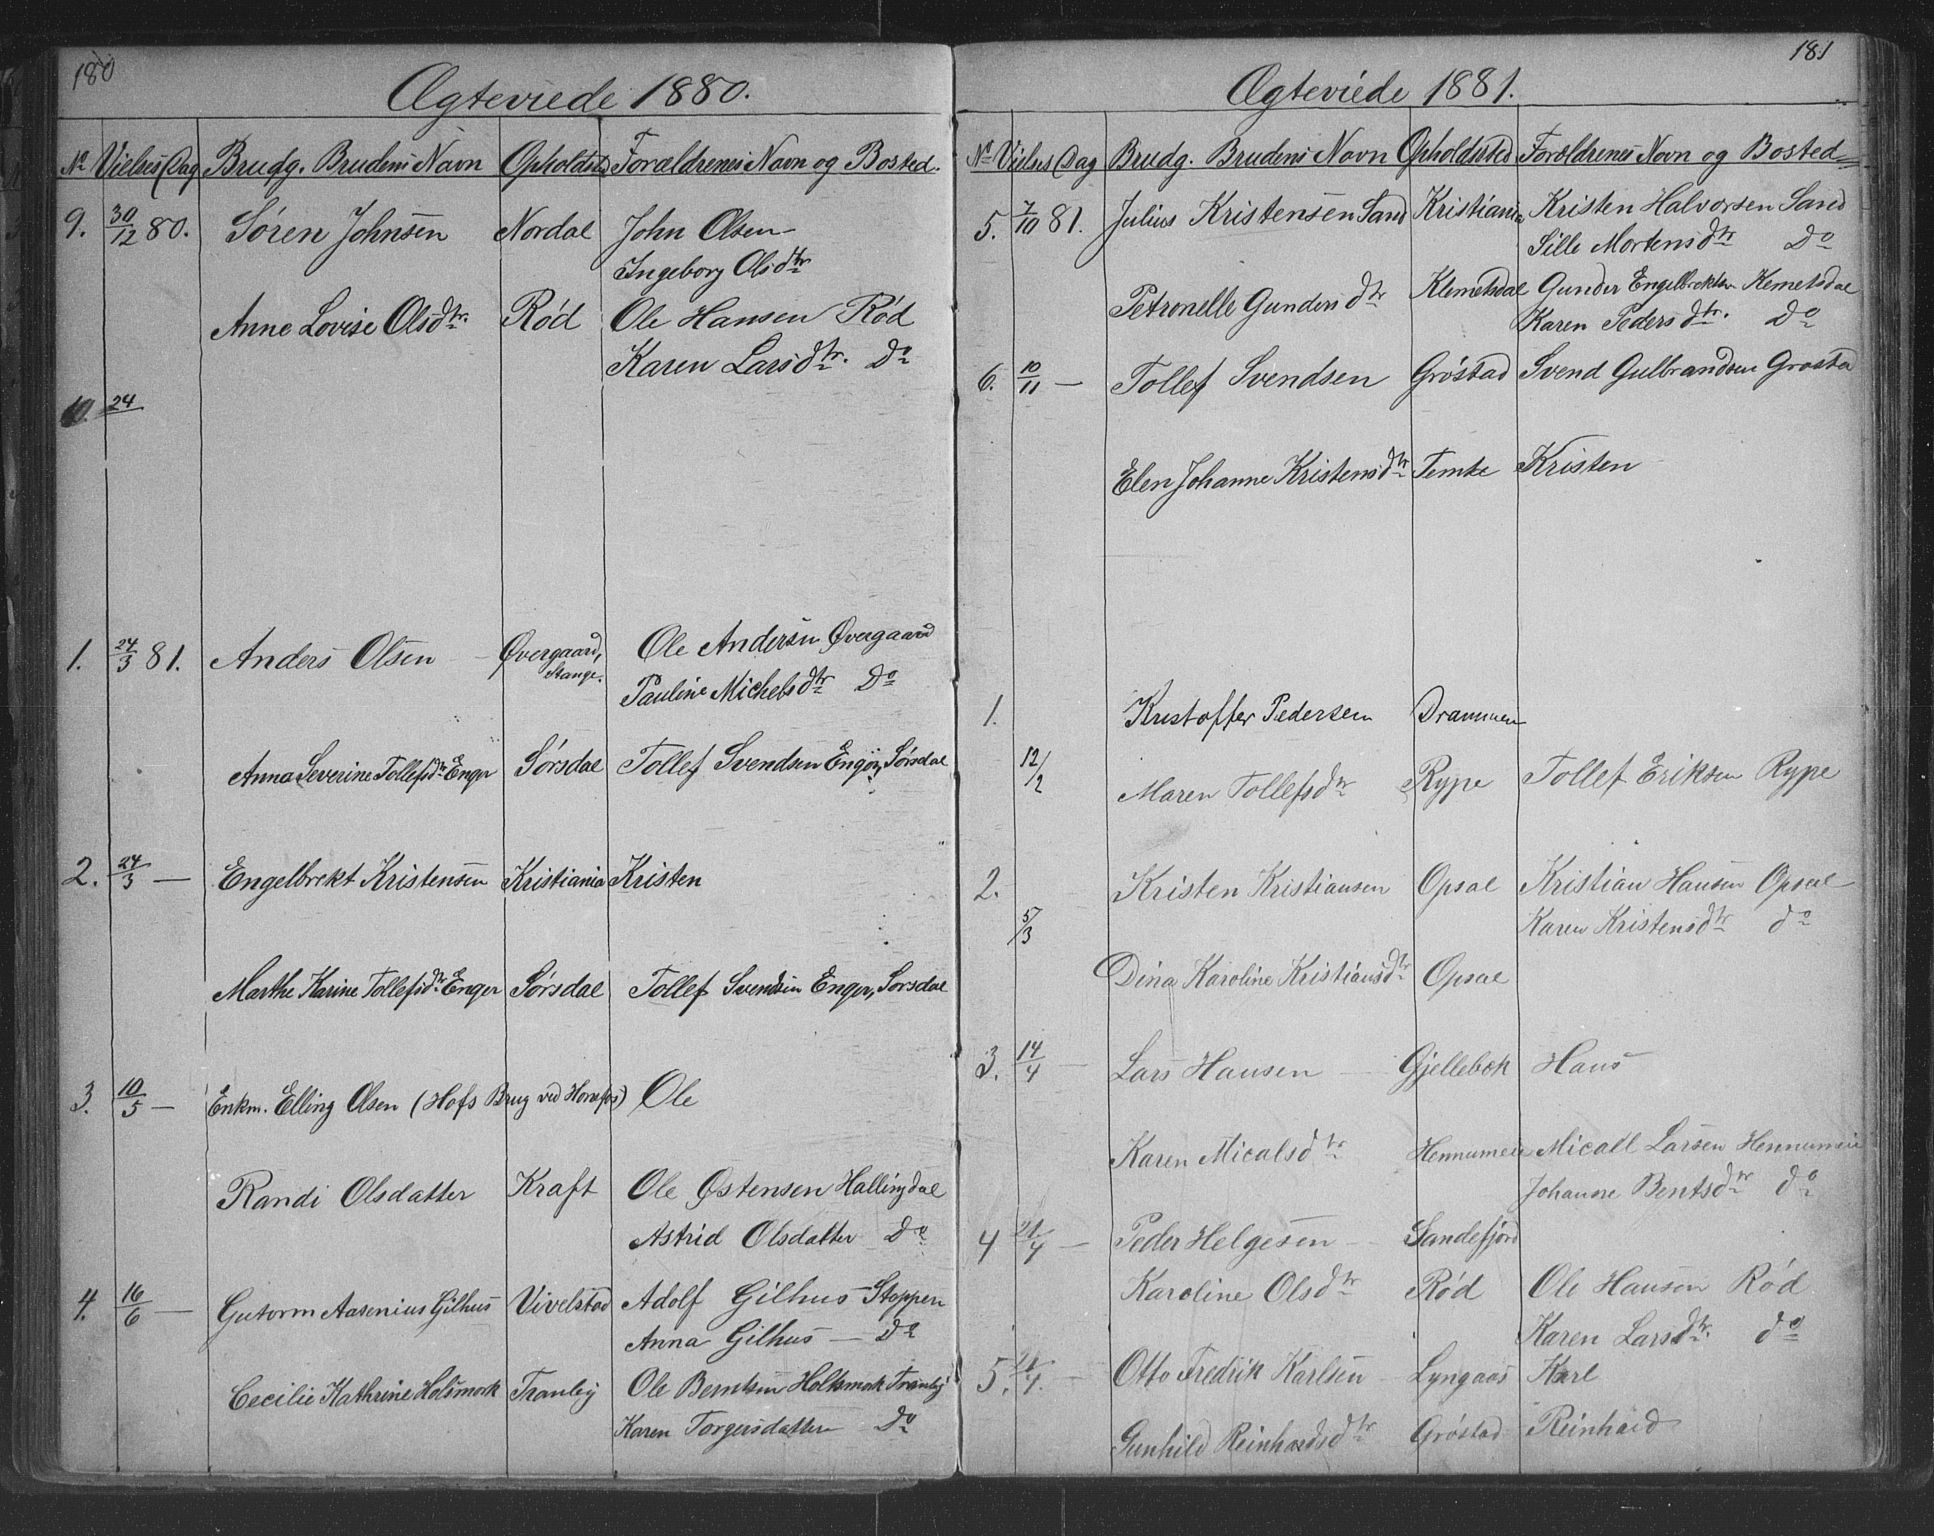 180
Ægteviede 1880.
No Vielses Dag Brudg. Brudens Navn Opholdsted Forældrenes Navn og Bosted.
9. 30/12 80. Søren Johnsen Nordal John Olsen
Ingeborg Olsdtr
Anne Lovise Olsdtr. Rød Ole Hansen Rød
Karen Larsdtr. Do
10. 24
1. 24/3 81. Anders Olsen Øvergaard, Ole Andersen Øvergaard
Stange.
Pauline Michelsdtr Do
Anna Severine Tollefsdtr Enger Sørsdal Tollef Svendsen Enger, Sørsdal
2. 24/3 — Engelbrekt Kristensen Kristiania Kristen
Marthe Karine Tollefsdtr Enger Sørsdal Tollef Svendsen Enger, Sørsdal
3. 10/5 — Enkm. Elling Olsen (Hofs Brug ved Honefos) Ole
Randi Olsdatter Kraft Ole Østensen Hallingdal
Astrid Olsdatter Do
4. 16/6 — Gutorm Aasenius Gilhus Vivelstad Adolf Gilhus Stoppen
Anna Gilhus — Do
Cecilie Kathrine Holsmork Tranby Ole Berntsen Holtsmark Tranby
Karen Torgersdatter Do
181
Ægteviede 1881.
No Vielses Dag Brudg. Brudens Navn Opholdsted Forældrenes Navn og Bosted
5. 7/10 81. Julius Kristensen Sand Kristiania Kristen Halvorsen Sand
Sille Mortensdtr Do
Petronelle Gundersdtr Klemetsdal Gunder Engelbrektsen Kemetsdal
Karen Pedersdtr. Do
6. 10/11 — Tollef Svendsen Grøstad Svend Gulbrandsen Grøsta
Elen Johanne Kristensdtr Temte Kristen
1. Kristoffer Pedersen Drammen
12/2 Maren Tollefsdtr Rype Tollef Eriksen Rype
2. Kristen Kristiansen Opsal Kristian Hansen Opsal
5/3 Karen Kristensdtr do
Dina Karoline Kristiansdtr Opsal
3. 14/4 — Lars Hansen — Gjellebek Hans
Karen Micalsdtr Hennumeie Micall Larsen Hennumeie
Johanne Bentsdtr do
4 21/4 — Peder Helgesen Sandefjord
Karoline Olsdtr Rød Ole Hansen Rød
Karen Larsdtr. do
5. Otto Fredrik Karlsen Lyngaas Karl
Gunhild Reinhardsdtr Grøstad Reinhard